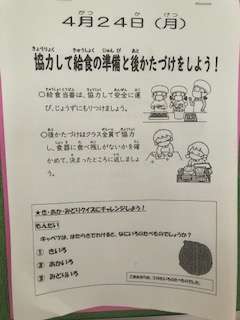 4月24日（月）
協力して給食の準備と後かたづけをしよう！
○給食当番は、協力して安全に運
び、じょうずにもりつけましょう。
○後かたづけはクラス全員で協力
し、食器に食べ残しがないかを確
かめて、決まったところに返しましょ
う。
★き・あか・みどりクイズにチャレンジしよう！
もんだい
キャベツは、はたらきでわけると、なにいろのたべものでしょうか？
① きいろ
② あかいろ
③ みどりいろ